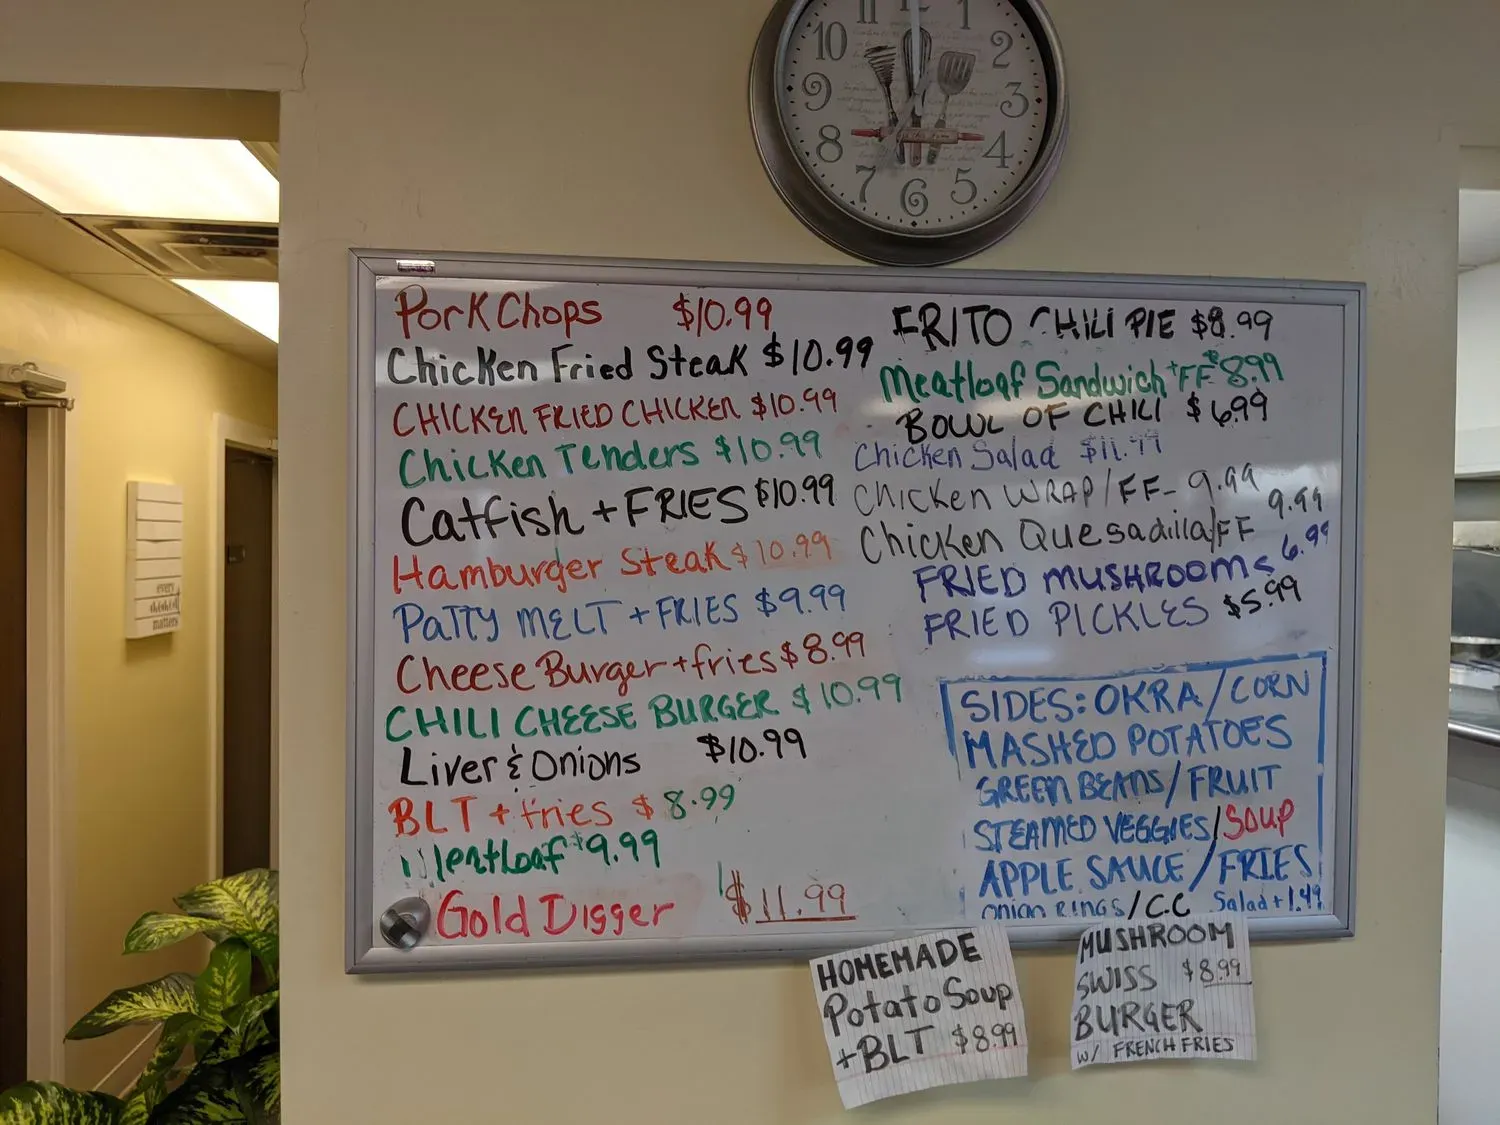 11 12 1
10 2
9 3
8 4
7 6 5
every
moment
matters
Pork Chops $10.99
Chicken Fried Steak $10.99
CHICKEN FRIED CHICKEN $10.99
Chicken Tenders $10.99
Catfish + FRIES $10.99
Hamburger Steak $10.99
PATTY MELT + FRIES $9.99
Cheese Burger + fries $8.99
CHILI CHEESE BURGER $10.99
Liver & Onions $10.99
BLT + fries $8.99
Meatloaf $9.99
Gold Digger $11.99
FRITO CHILI PIE $8.99
Meatloaf Sandwich + FF $8.99
BOWL OF CHILI $6.99
Chicken Salad $11.99
Chicken WRAP/FF- 9.99
Chicken Quesadilla/FF 9.99
FRIED MUSHROOMS 6.99
FRIED PICKLES $5.99
SIDES: OKRA/CORN
MASHED POTATOES
GREEN BEANS/FRUIT
STEAMED VEGGIES/SOUP
APPLE SAUCE/FRIES
ONION RINGS/C.C Salad + 1.49
HOMEMADE
Potato Soup
+BLT $8.99
MUSHROOM
SWISS $8.99
BURGER
W/ FRENCH FRIES